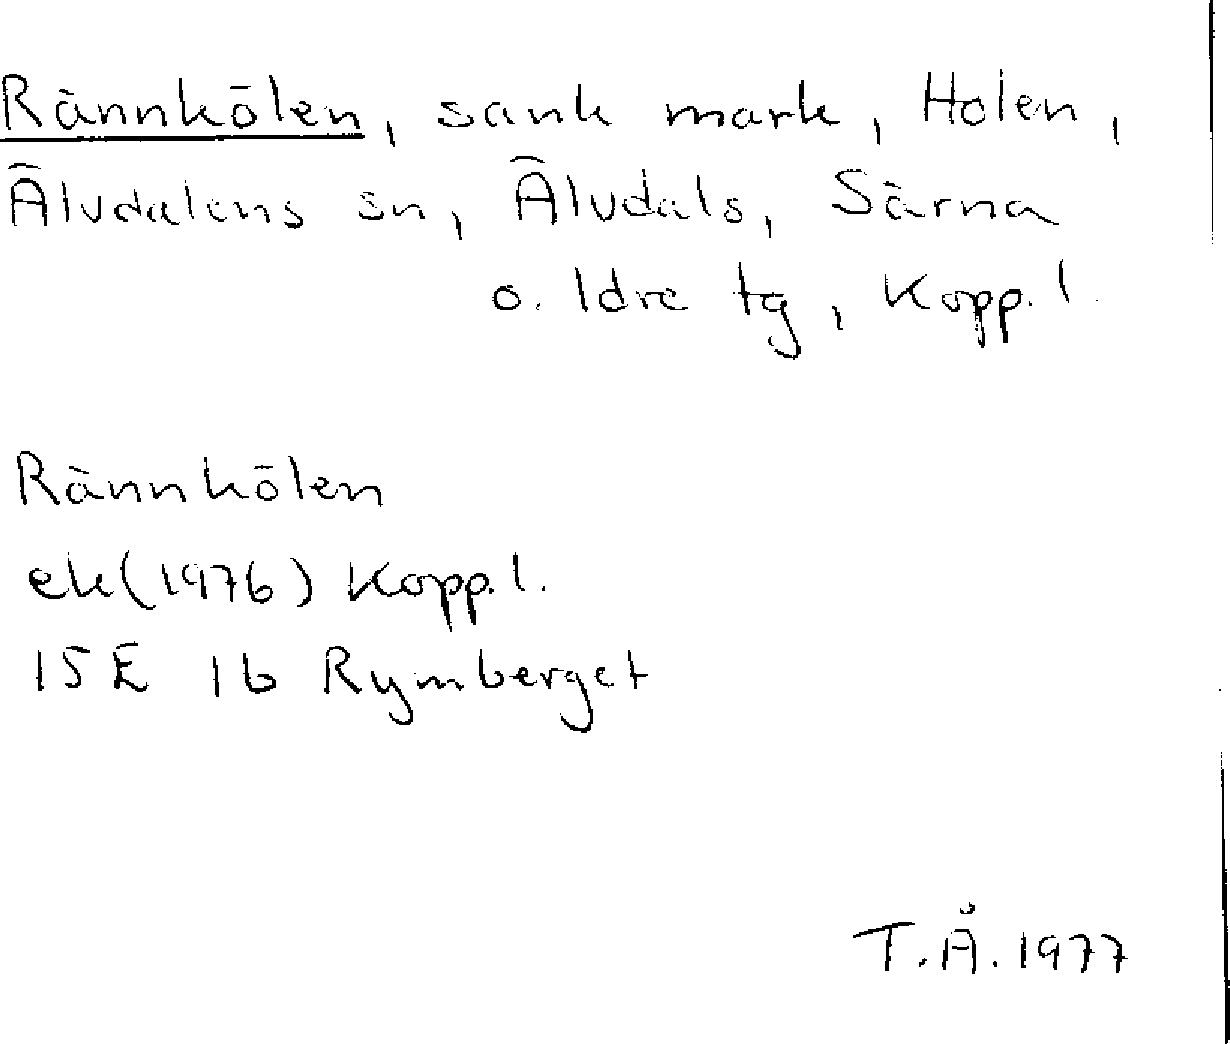 Rännkölen, sank mark, Holen,
Älvdalens sn, Älvdals, Särna
o. Idre tg, Kopp. l.
Rännkölen
ek(1976) Kopp. l.
15E 1b Rymberget
T.Å. 1977